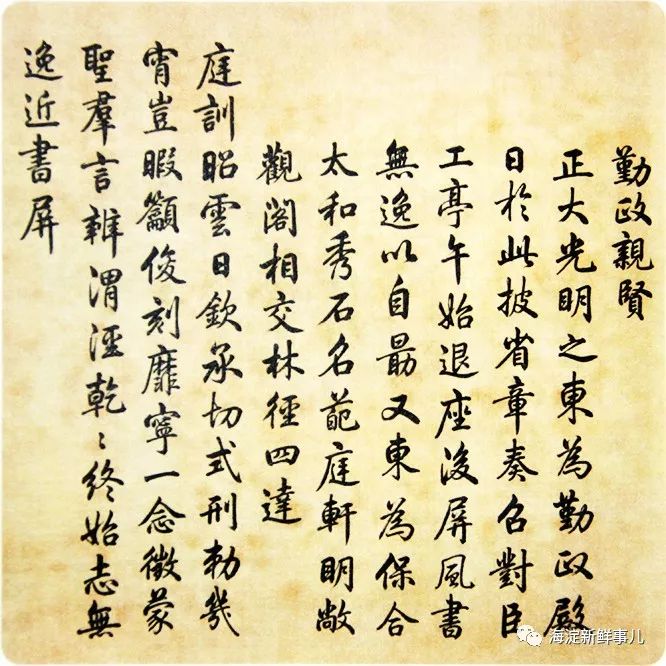 勤政親賢
正大光明之東為勤政殿
日於此披省章奏召對臣
工亭午始退座後屏風書
無逸以自勗又東為保合
太和秀石名葩庭軒明敞
觀閣相交林徑四達
庭訓昭雲日欽承切式刑勅幾
宵豈暇籲俊刻靡寧一念徵蒙
聖羣言辨渭涇乾〻終始志無
逸近書屏
海淀新鲜事儿